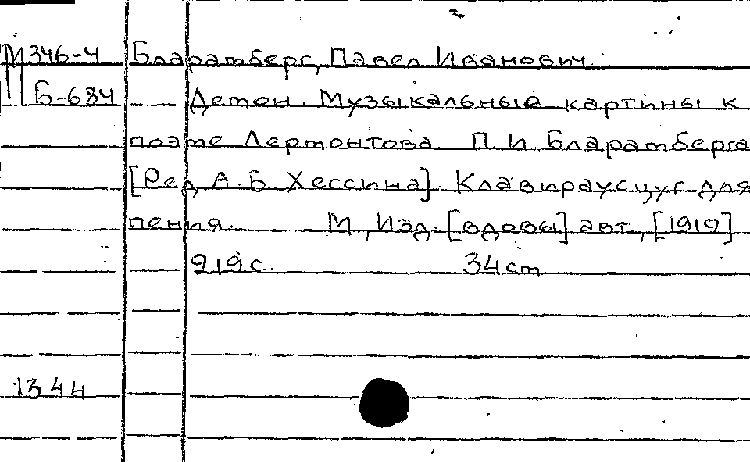 М346-4 Бларамберг, Павел Иванович.
Б-684 Демон. Музыкальные картины к
поэме Лермонтова П. И. Бларамберга
[Ред. А. Б. Хессина]. Клавираусцуг для
пения. М., Изд. [вдовы] авт., [1919]
219 с. 34 cm
1344